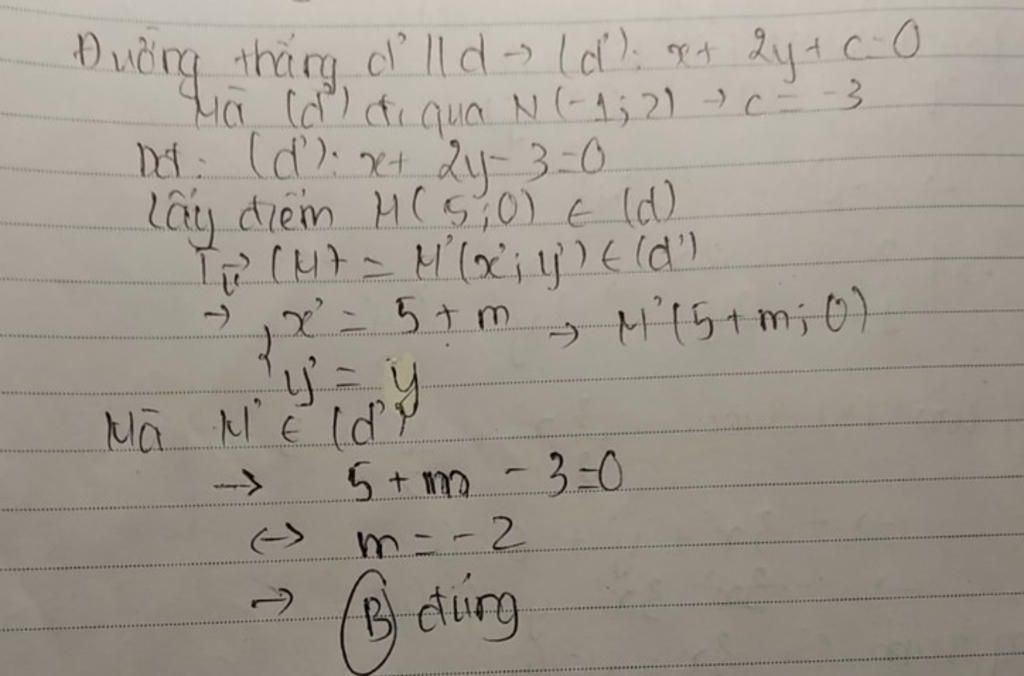 Đường thẳng d' // d → (d'): x + 2y + c = 0
Mà (d') đi qua N(-1; 2) → c = -3
(d'): x + 2y - 3 = 0
Lấy điểm M(5; 0) ∈ (d)
(M) = M'(x'; y') ∈ (d')
→ { x' = 5 + m → M'(5 + m; 0)
y' = y
Mà M' ∈ (d')
→ 5 + m - 3 = 0
↔ m = -2
→ B đúng